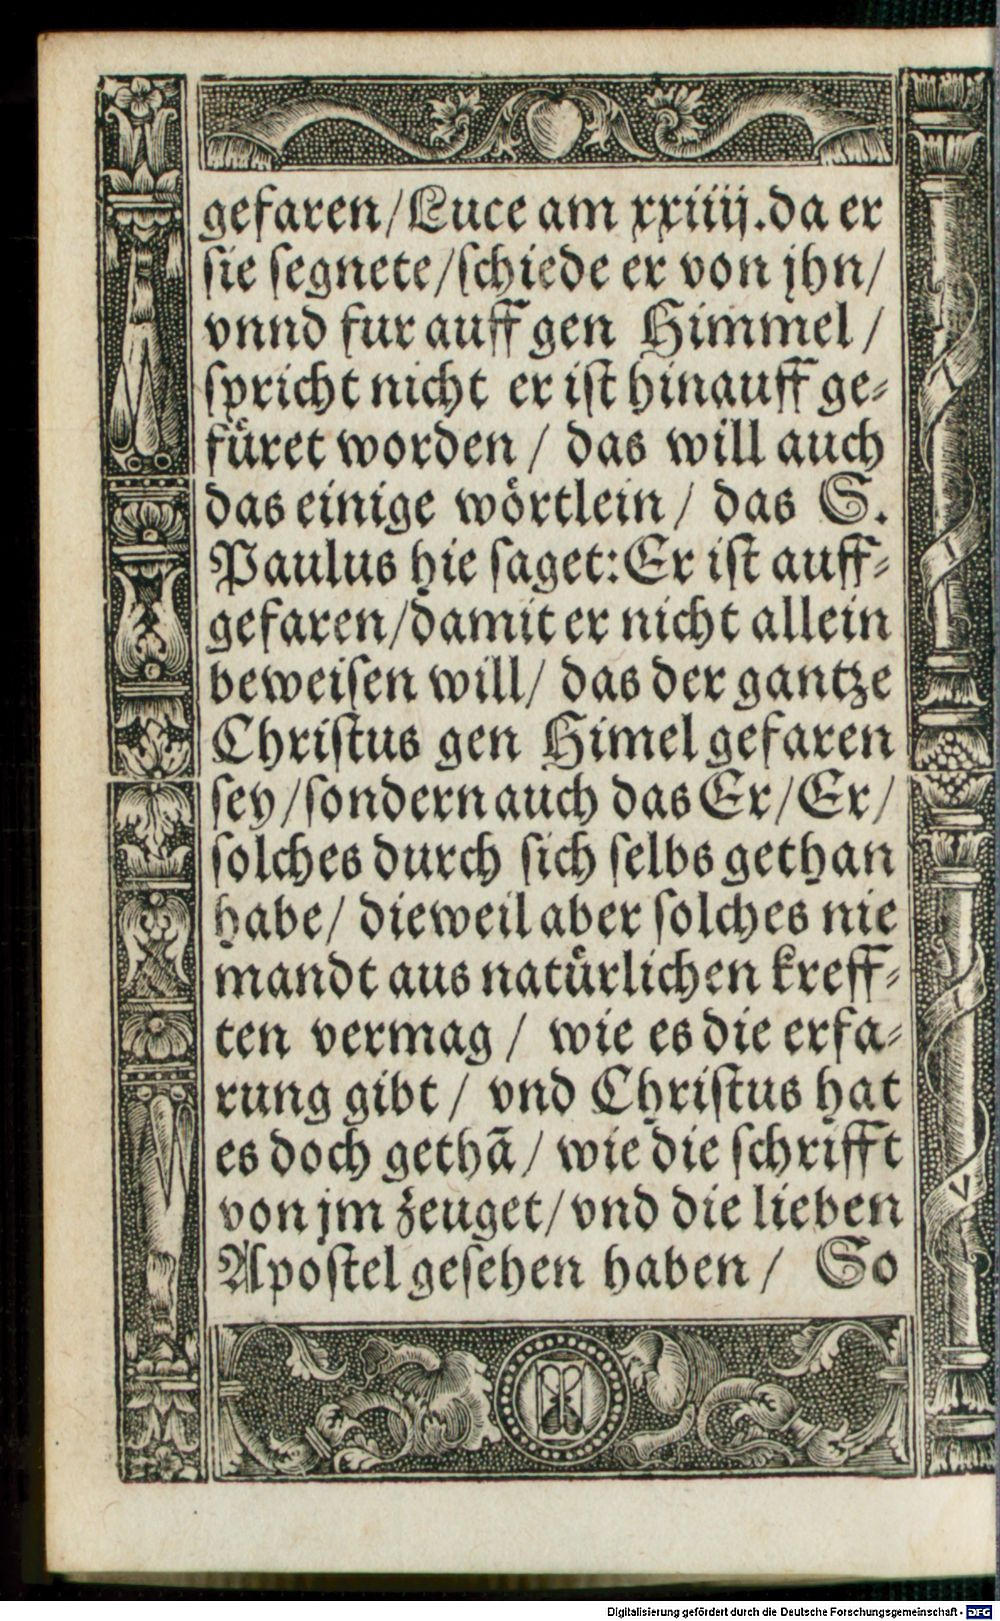 gefaren/Luce am xxiiij.da er
sie segnete/schiede er von jhn/
vnnd fur auff gen Himmel/
spricht nicht er ist hinauff ge-
füret worden/ das will auch
das einige wörtlein/ das S.
Paulus hie saget:Er ist auff-
gefaren/damit er nicht allein
beweisen will/ das der gantze
Christus gen Himel gefaren
sey/sondern auch das Er/Er/
solches durch sich selbs gethan
habe/ dieweil aber solches nie
mandt aus natürlichen kreff-
ten vermag/ wie es die erfa-
rung gibt/ vnd Christus hat
es doch gethã/ wie die schrifft
von jm zeuget/vnd die lieben
Apostel gesehen haben/ So
Digitalisierung gefördert durch die Deutsche Forschungsgemeinschaft - DFG